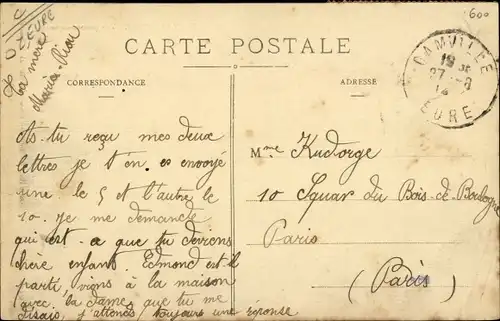 600
27 EURE
Ta mère
Maria
CARTE POSTALE
CORRESPONDANCE
ADRESSE
DAMVILLE
19
27
14
EURE
As-tu reçu mes deux
lettres je t'en es envoyé
une le 5 et l'autre le
10. je me demande
qui est-a que tu deviens
chère enfant Edmond est-il
parti, viens à la maison
avec la dame que tu me
disais, j'attends toujours une réponse
Mme Kudorge
10 Squar du Bois-de-Boulogne
Paris
(Paris)